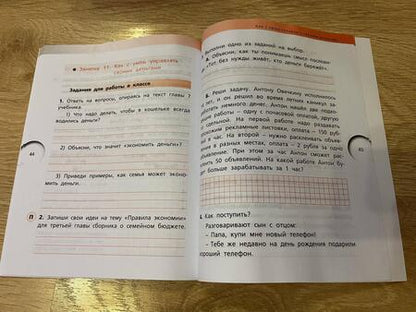 Занятие 11. Как с умом управлять
своими деньгами
Задания для работы в классе
1. Ответь на вопросы, опираясь на текст главы 7
учебника.
1) Что надо делать, чтобы в кошельке всегда
водились деньги?
2) Объясни, что значит «экономить деньги».
3) Приведи примеры, как семья может эконо-
мить деньги.
2. Запиши свои идеи на тему «Правила экономии»
для третьей главы сборника о семейном бюджете.
44
Выполни одно из заданий на выбор.
Объясни, как ты понимаешь смысл послови-
«Тот без нужды живёт, кто деньги бережёт».
Реши задачу. Антону Овечкину исполнилось
лет, и он решил во время летних каникул за-
работать немного денег. Антон
работы – одну с почасовой оплатой, другую
сдельной. На первой работе надо раздавать
рекламные листовки, оплата – 150 руб-
в час. На второй – нужно расклеивать объяв-
в разных местах, оплата – 2 рубля за одно
объявление. При этом за час Антон сможет рас-
50 объявлений. На какой работе Антон бу-
больше зарабатывать за 1 час?
45
Как поступить?
Разговаривают сын с отцом:
– Папа, купи мне новый телефон!
– Тебе же недавно на день рождения подарили
хороший телефон.